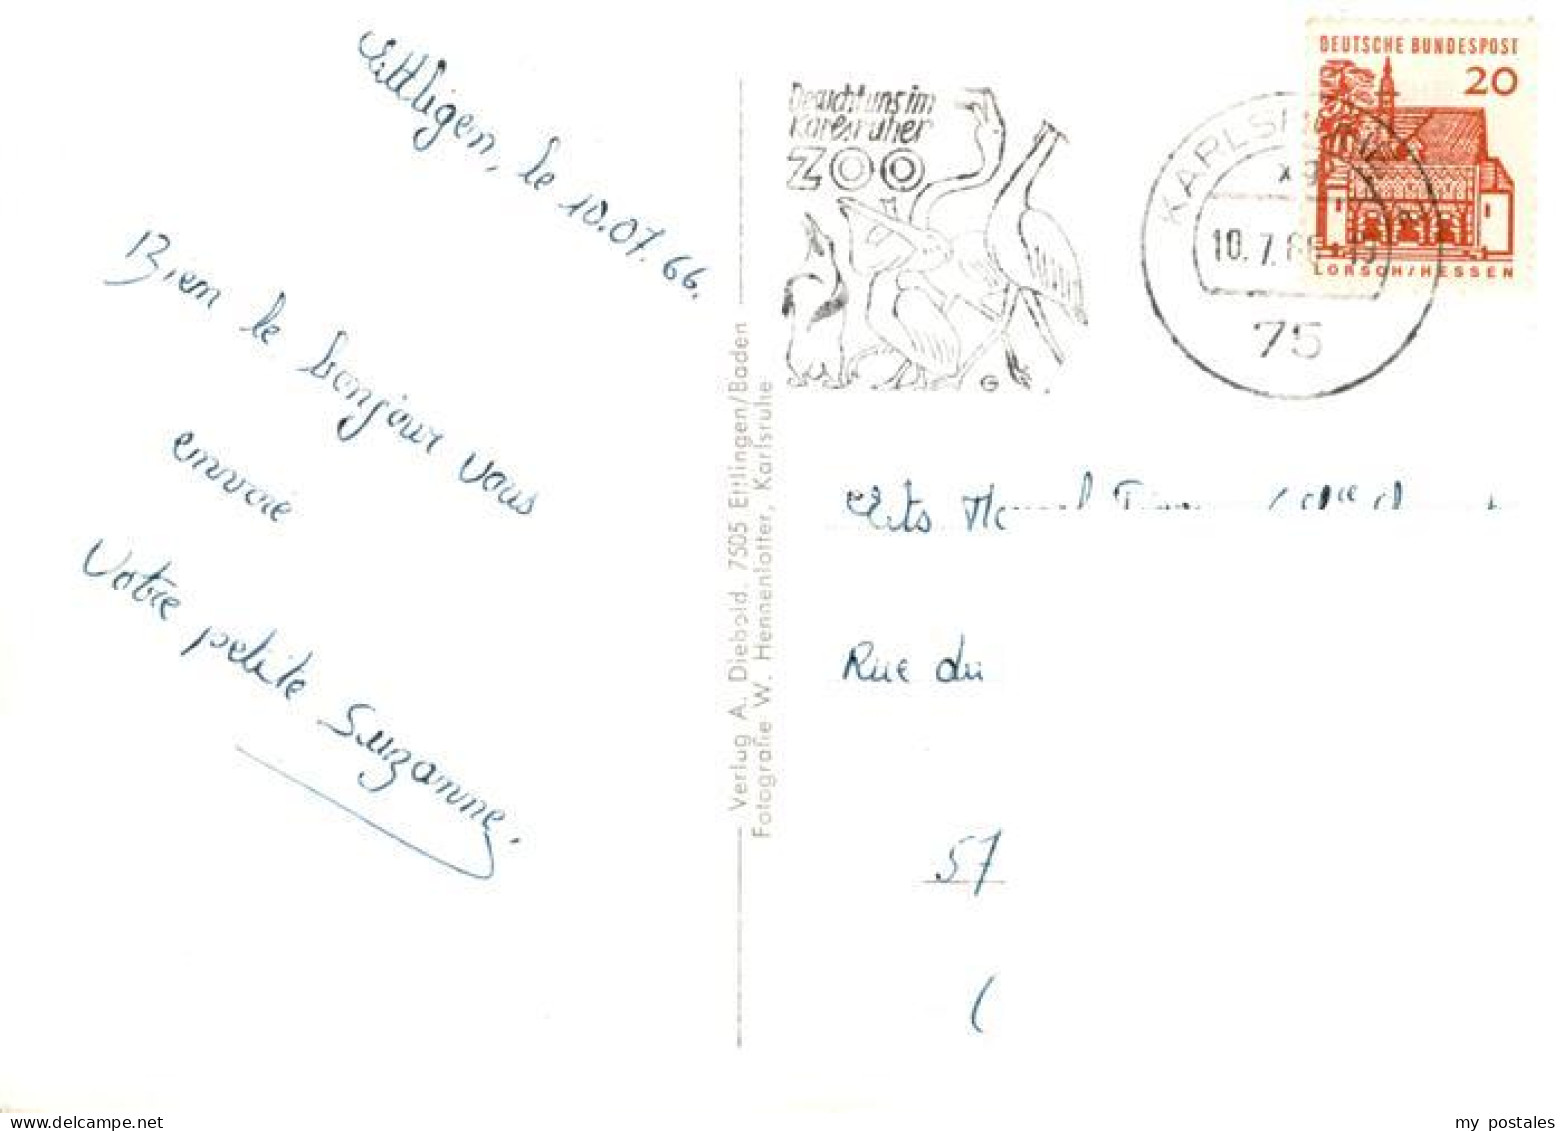 Ettligen, le 10.07.66.
Bien le bonjour vous
envoie
Votre petite Suzanne.
Verlag A. Diebold, 7505 Ettlingen/Baden
Fotografie W. Hennenlotter, Karlsruhe
Besucht uns im
Karlsruher
ZOO
G
KARLSRUHE
10.7.66
75
DEUTSCHE BUNDESPOST
20
LORSCH/HESSEN
Ets
Rue du
57
my postales